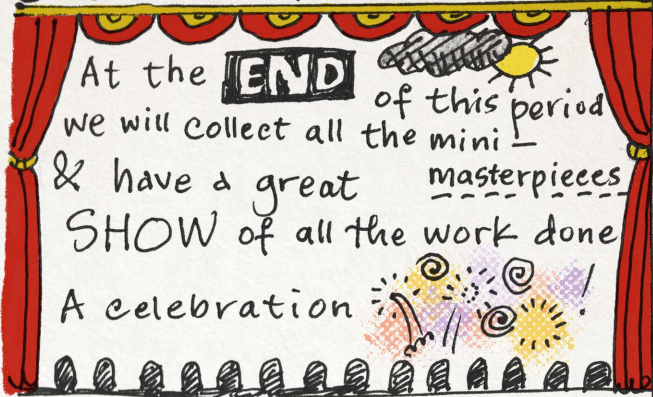 At the END
of this period
we will collect all the mini-
masterpieces
& have a great
SHOW of all the work done
A celebration